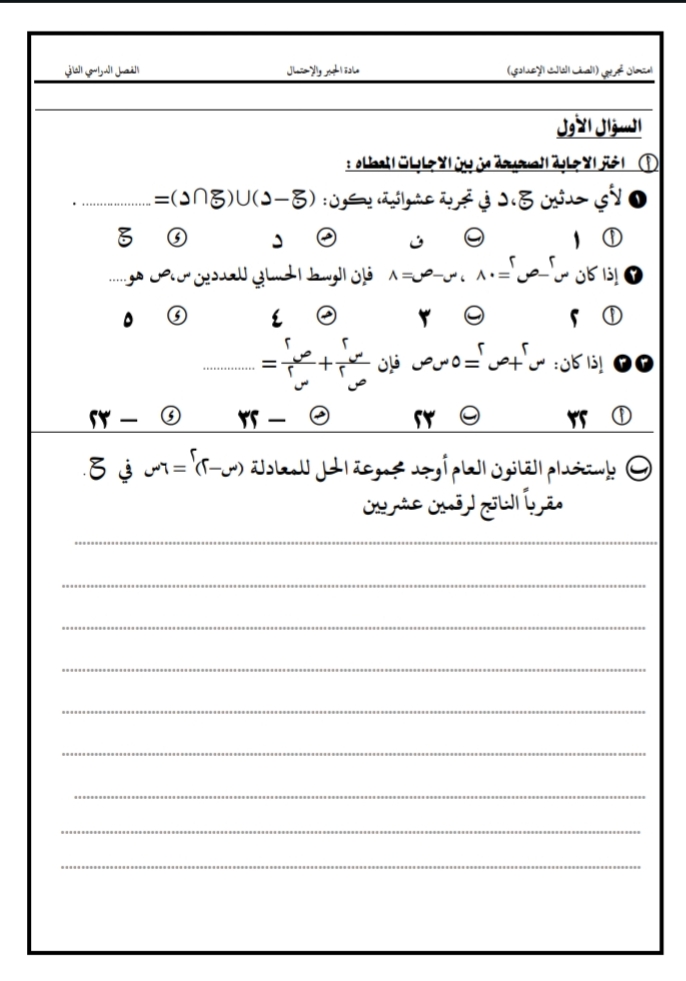 امتحان تجريبي (الصف الثالث الإعدادي) مادة الجبر والإحتمال الفصل الدراسي الثاني
السؤال الأول
أ اختر الاجابة الصحيحة من بين الاجابات المعطاه :
١ لأي حدثين ح، د في تجربة عشوائية، يكون: (ح−د)∪(ح∩د)= .................... .
أ ا ب ف ج د د ح
٢ إذا كان س٢−ص٢=٨٠ ، س−ص=٨ فإن الوسط الحسابي للعددين س، ص هو.....
أ ٢ ب ٣ ج ٤ د ٥
٣ ٣ إذا كان: س٢+ص٢=٥س ص فإن س٢/ص٢ + ص٢/س٢ = ..............
أ ٣٢ ب ٢٣ ج − ٣٢ د − ٢٣
ب بإستخدام القانون العام أوجد مجموعة الحل للمعادلة (س−٢)٢ = ٦س في ح.
مقرباً الناتج لرقمين عشريين